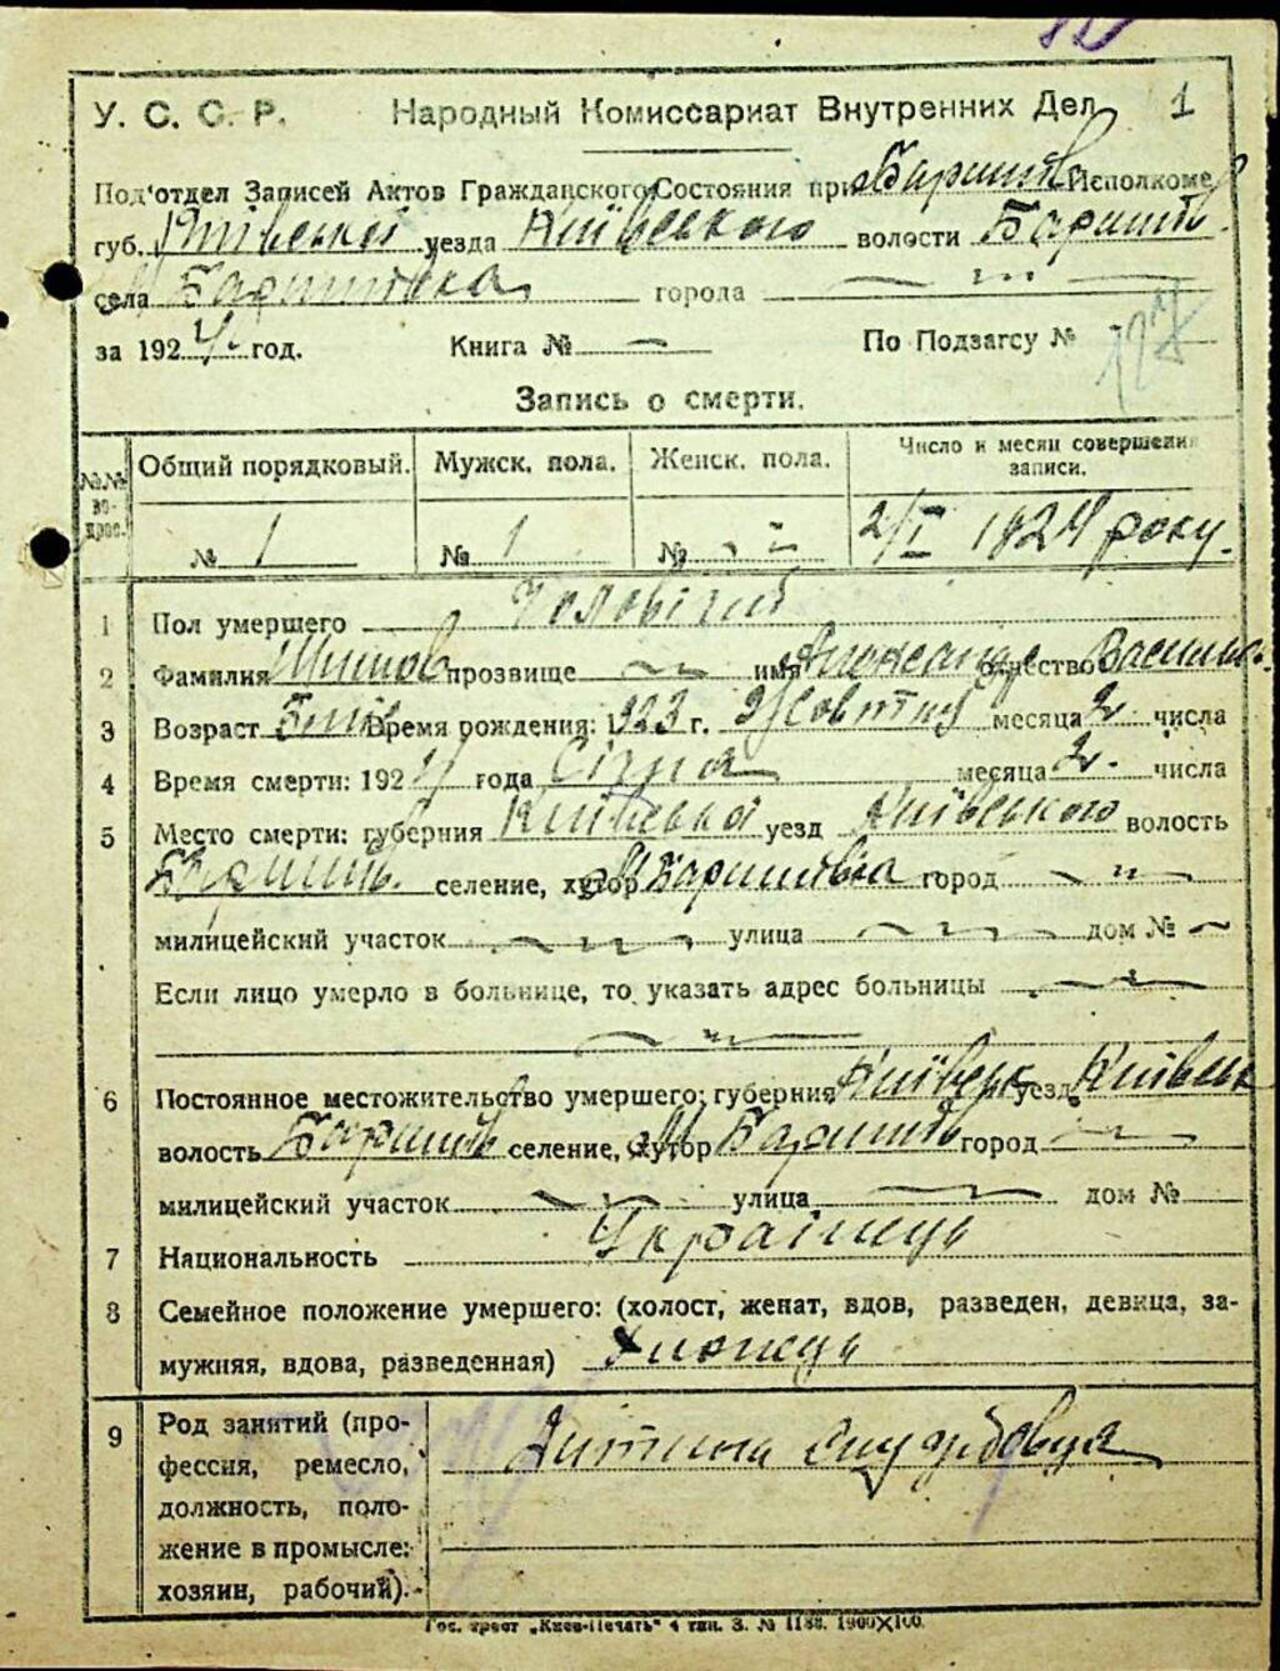 У. С. С. Р. Народный Комиссариат Внутренних Дел 1
Под'отдел Записей Актов Гражданского Состояния при Баришів Исполкоме
губ. Київської уезда Київського волости Баришів.
села Баришівка города
за 1924 год. Книга № — По Подзагсу № 127
Запись о смерти.
№№ вопрос. Общий порядковый. Мужск. пола. Женск. пола. Число и месяц совершения записи.
№ 1 № 1 № 2/I 1924 року.
1 Пол умершего Чоловічий
2 Фамилия прозвище имя Олександр отчество Василь.
3 Возраст Время рождения: 1923 г. Жовтня месяца 2 числа
4 Время смерти: 1924 года Січня месяца 2. числа
5 Место смерти: губерния Київська уезд Київського волость
Баришів. селение, хутор М Баришівка город
милицейский участок улица дом №
Если лицо умерло в больнице, то указать адрес больницы
6 Постоянное местожительство умершего: губерния Київськ уезд Київськ
волость Баришів селение, хутор М Баришів город
милицейский участок улица дом №
7 Национальность Українець
8 Семейное положение умершего: (холост, женат, вдов, разведен, девица, за-
мужняя, вдова, разведенная) Хлопець
9 Род занятий (про-
фессия, ремесло,
должность, поло-
жение в промысле:
хозяин, рабочий).
Дитина
Гос. трест „Киев-Печать" 4 тип. З. № 1188. 1900×100.